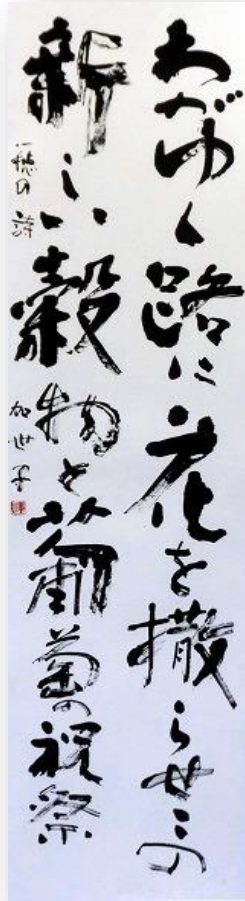 わがゆく路に花を撒らせこの
新しい穀物と葡萄の祝祭
一穂の詩 加世子